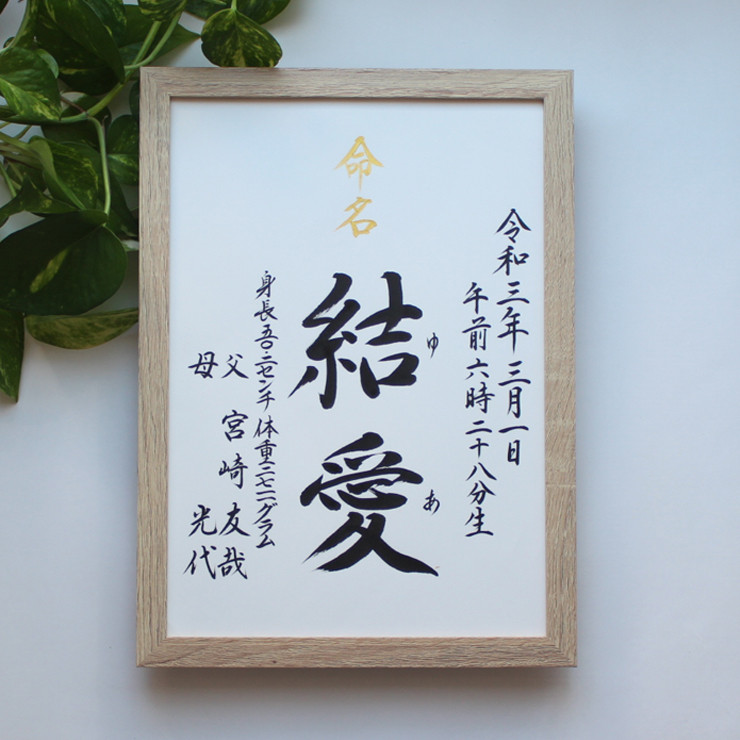 令和三年 三月一日
午前六時二十八分生
命名
結愛
ゆ あ
身長五〇・二センチ 体重二七二一グラム
父 宮崎友哉
母 光代